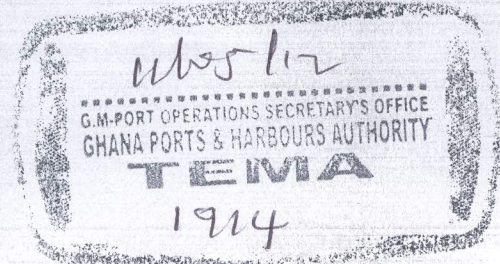 11/05/12
G.M-PORT OPERATIONS SECRETARY'S OFFICE
GHANA PORTS & HARBOURS AUTHORITY
TEMA
1914